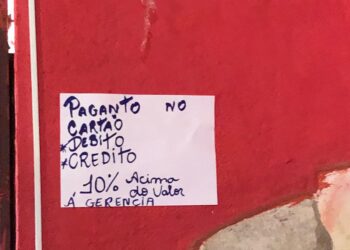 PAGANTO NO
CARTAO
*DEBITO
*CREDITO
10% Acima
do Valor
Á GERENCIA